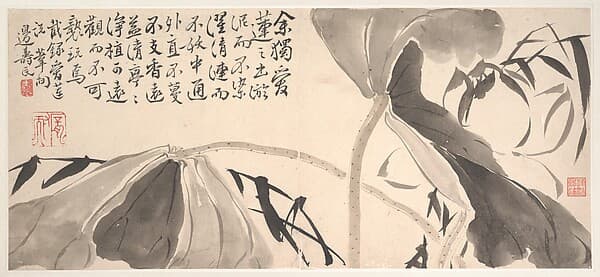 余獨愛
蓮之出淤
泥而不染
濯清漣而
不妖中通
外直不蔓
不支香遠
益清亭々
淨植可遠
觀而不可
褻玩焉
截錄愛蓮
說葦間
邊壽民